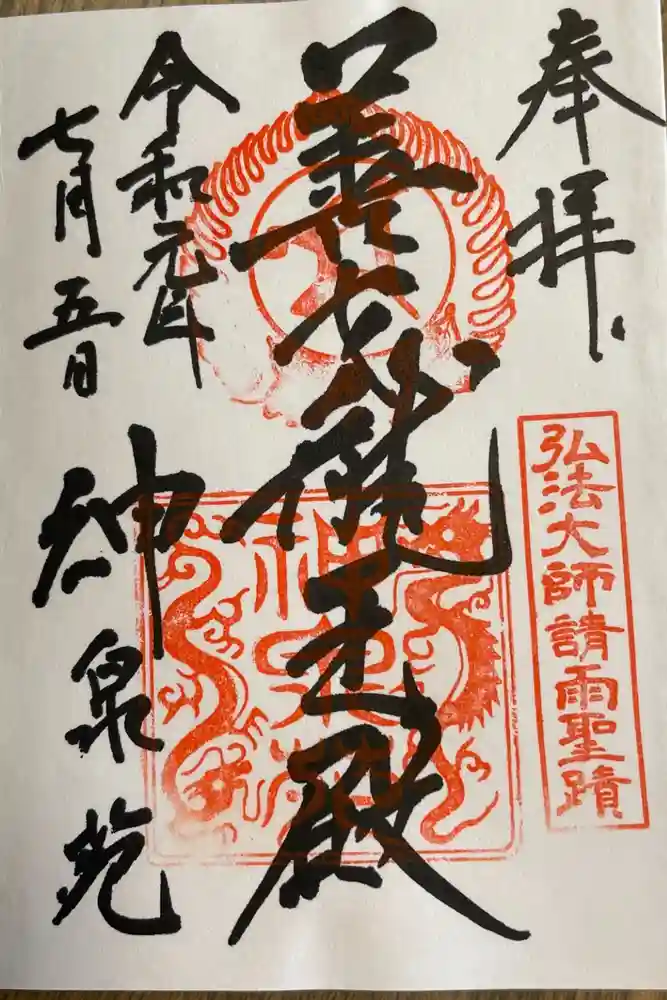 奉拝
弘法大師請雨聖蹟
善女龍王殿
神泉苑
令和元年
七月五日
神泉苑